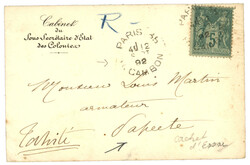 Cabinet
du
Sous-Secrétaire d'État
des Colonies
R
PARIS
92
CAMBON
5
Monsieur Louis Martin
armateur
Papeete
Tahiti
cachet